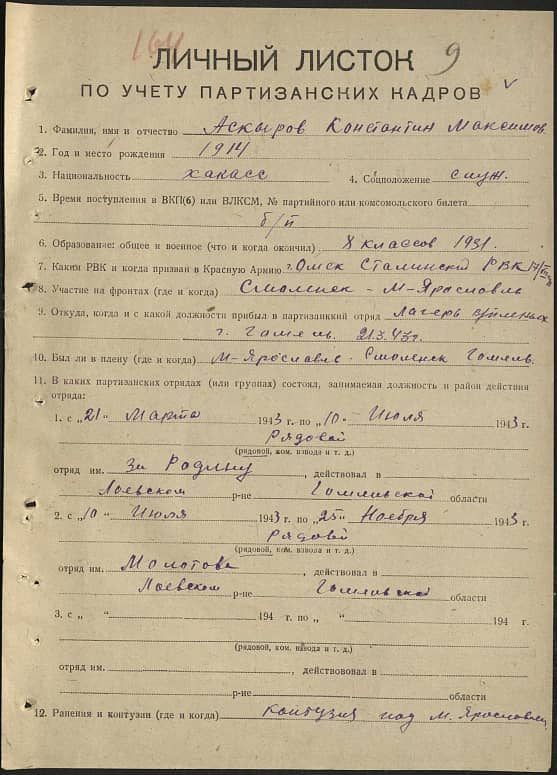 164
ЛИЧНЫЙ ЛИСТОК 9
ПО УЧЕТУ ПАРТИЗАНСКИХ КАДРОВ v
1. Фамилия, имя и отчество Аскыров Константин Максимов.
2. Год и место рождения 1914
3. Национальность хакасс 4. Соцположение служ.
5. Время поступления в ВКП(б) или ВЛКСМ, № партийного или комсомольского билета
б/п
6. Образование: общее и военное (что и когда окончил) 8 классов 1931.
7. Каким РВК и когда призван в Красную Армию г. Омск Сталинский РВК
8. Участие на фронтах (где и когда) Смоленск - М-Ярославль
9. Откуда, когда и с какой должности прибыл в партизанкий отряд Лагерь в/пленных
г. Гомель. 21.3.43г.
10. Был ли в плену (где и когда) М-Ярославль - Смоленск Гомель.
11. В каких партизанских отрядах (или группах) состоял, занимаемая должность и район действия
отряда:
1. с „21" Марта 1943 г. по „10" Июля 1943 г.
Рядовой
(рядовой, ком. взвода и т. д.)
отряд им. За Родину, действовал в
Лоевском р-не Гомельской области
2. с „10" Июля 1943 г. по „25" Ноября 1943 г.
Рядовой
(рядовой, ком. взвода и т. д.)
отряд им. Молотова, действовал в
Лоевском р-не Гомельской области
3. с „ " 194 г. по „ " 194 г.
(рядовой, ком. взвода и т. д.)
отряд им. , действововал в
р-не области
12. Ранения и контузии (где и когда) контузия под М. Ярославлем